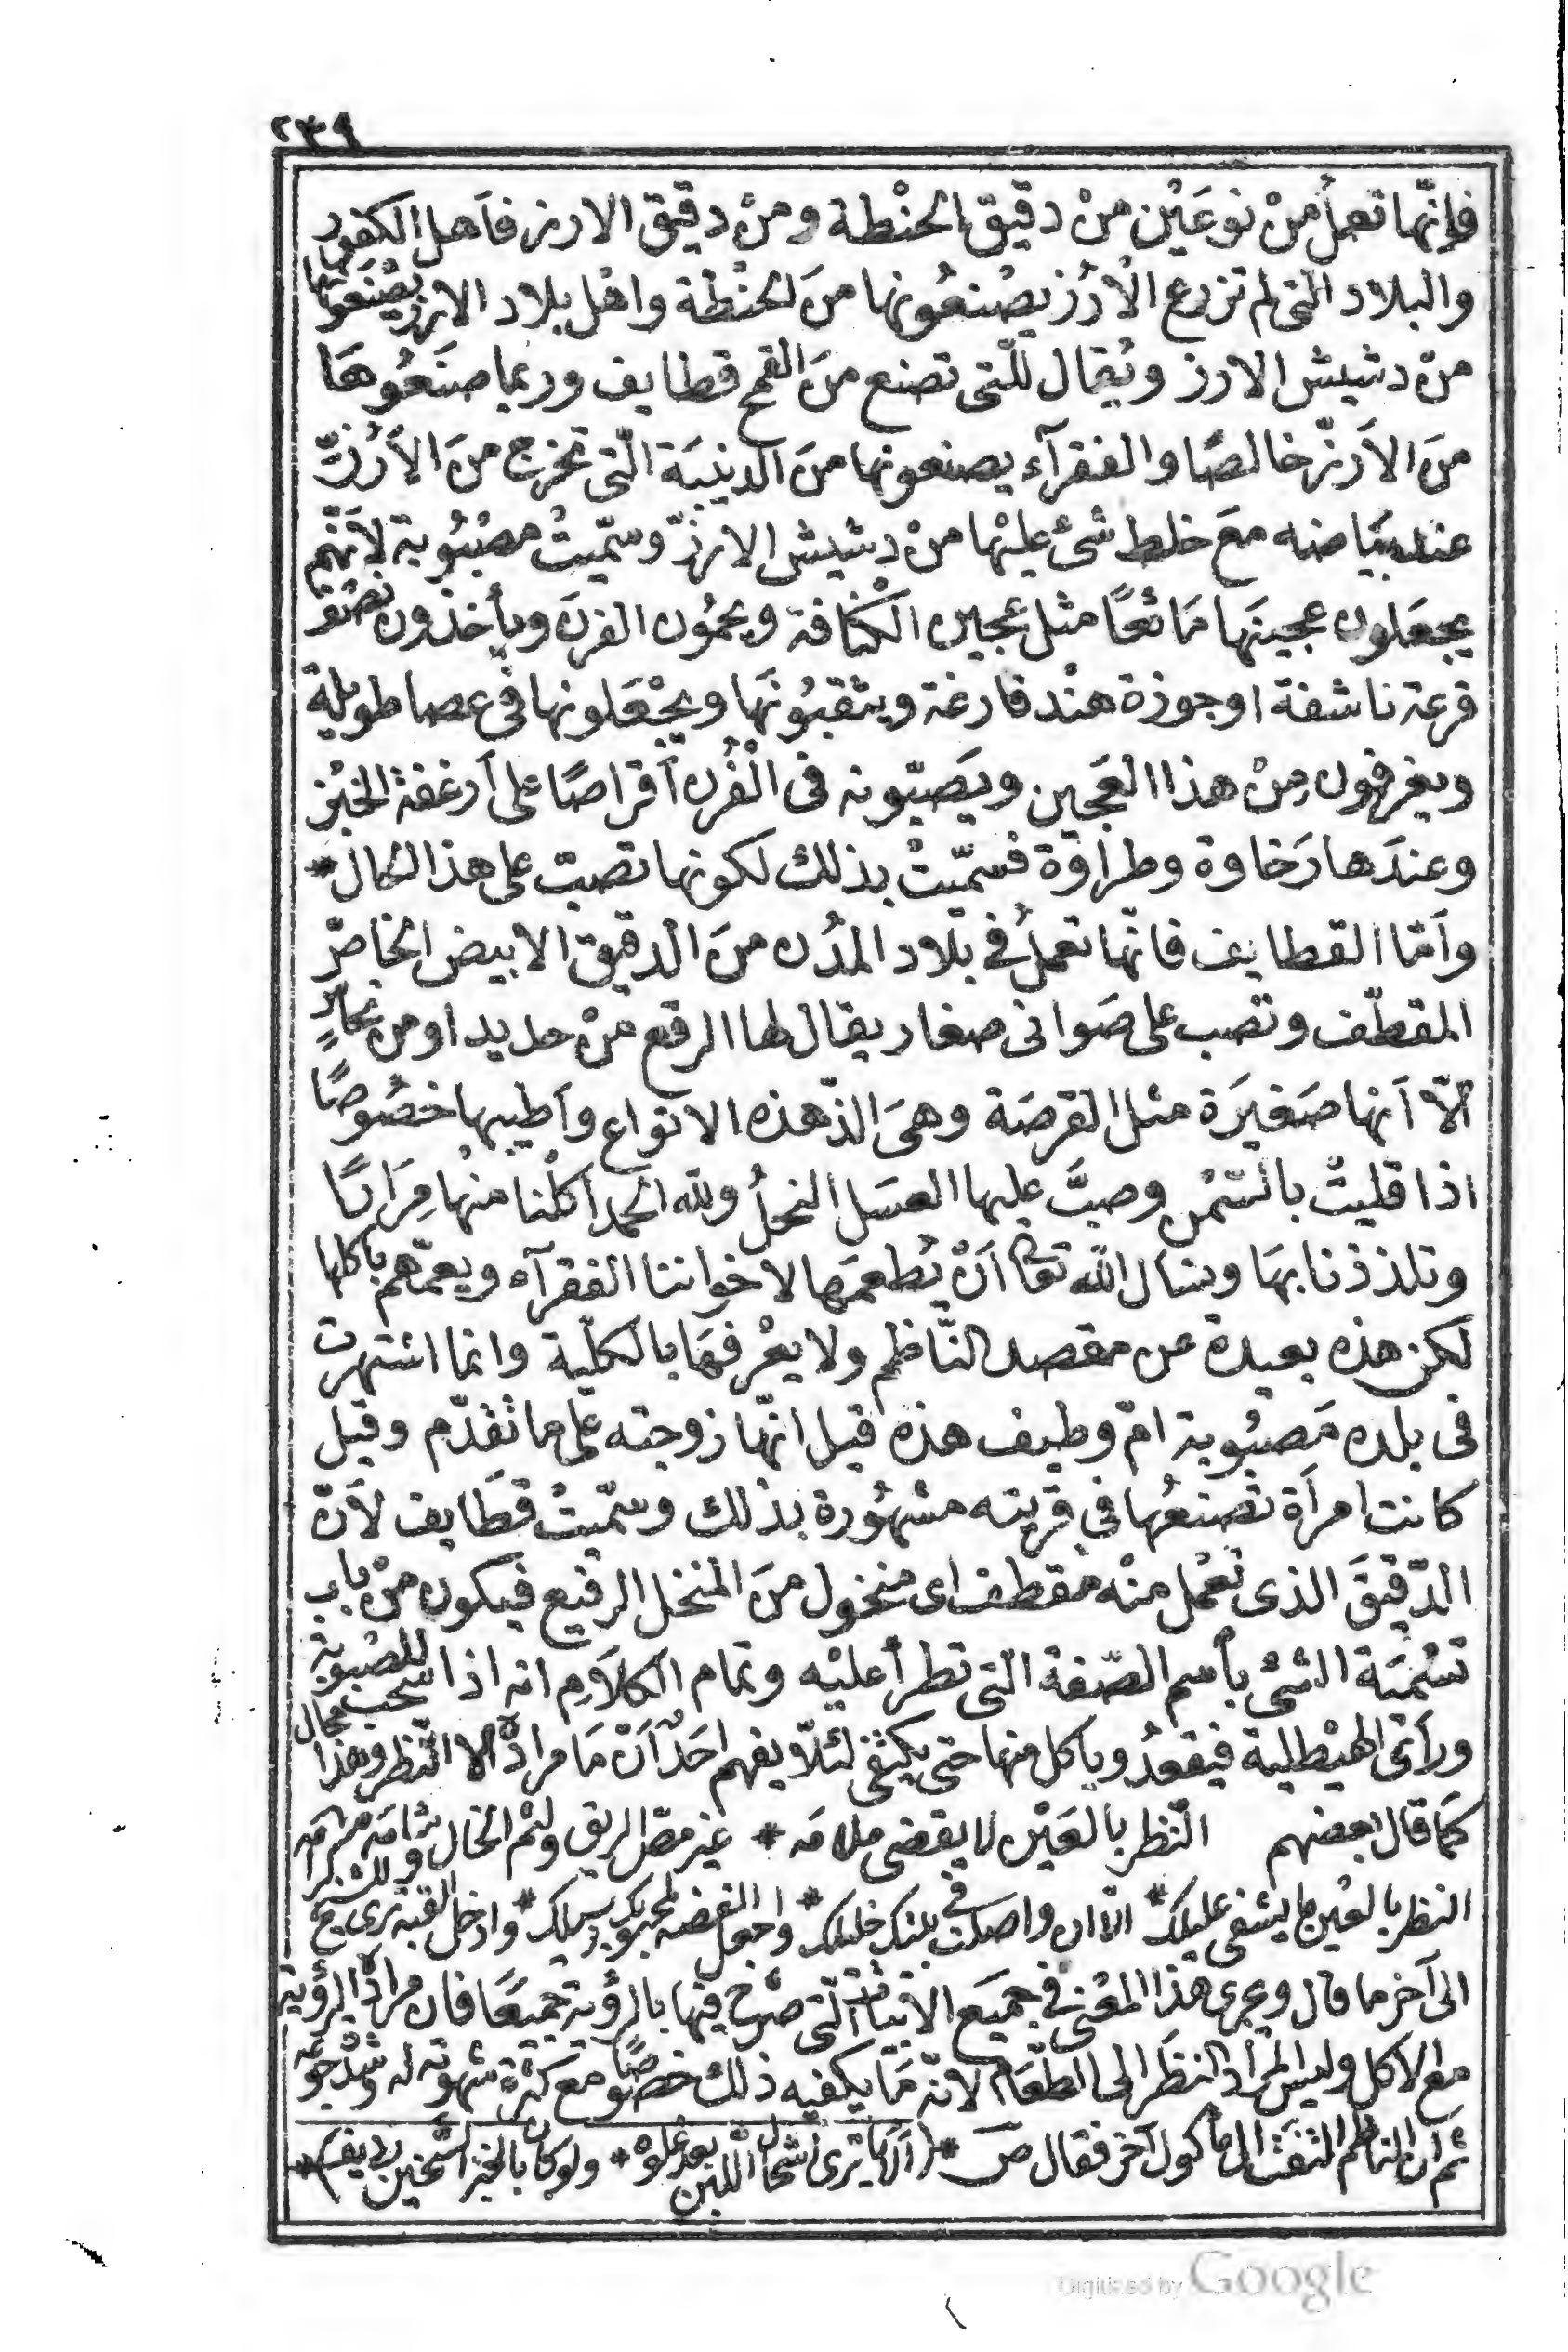 ٢٣٩
فإنّها تعملُ منْ نوعَيْن منْ دقيق الحنْطة ومنْ دقيق الارز فأهل الكفور
والبلاد التى لم تزرع الأرُز يصْنعُونها منَ الحنْطة واهْل بلاد الارز يصْنعُونها
منْ دشيش الارز ويُقال للّتى تصنع منَ القمح قطايف وربما صنَعُوهَا
منَ الأرزّ خالصًا والفقرآء يصنعونها منَ الدنيبَة الّتى تخرج منَ الأَرُزّ
عند بيَاضه معَ خلط شئ عليْها منْ دشيش الارزّ وسمّيتْ مصْبُوبة لأنّهم
يجعَلون عجينَها مَائعًا مثل عجين الكُنَافة ويحمُون الفرنَ ويأخذون نصْف
قرعة ناشفة اوجوزة هنْد فارغة ويثقبُونَها ويجْعَلونها فى عصا طويلة
ويغرفون مِنْ هذا العَجين ويَصبّونه فى الْفُرْن أقراصًا على أرغفة الخبْز
وعندَها رَخاوة وطراوة فسمّيتْ بذلك لكونها تصبّ على هذا الحال *
وأمّا القطايف فانّها تعملُ فى بلاد المدُن منَ الدقيق الابيض الخاصّ
المقطّف وتصب على صَوانى صغار يقال لها الرقع منْ حديد او من نحاسٍ
الّا أنها صَغيَرة مثل القرصَة وهىَ الذّ هذه الانواع وأطيبها خصُوصًا
اذا قليتْ بالسّمْن وصبَّ عليها العسَل النحلُ ولله الحمد أكلْنا منْها مِرَارًا
وتلذذنا بهَا ونسال الله تعَا أنْ يُطعمَها لاخواننا الفقرآء ويعمّهم باكلها
لكنْ هذه بعيدة عن مقصد النّاظم ولا يعْرفهَا بالكلّية وانما اشتهرت
فى بلده مَصبُوبة امّ وطيف هذه قيل انّها زوجته على ما تقدّم وقيل
كانت امرأة تصْنعُها فى قريته مشْهُورة بذلك وسمّيتْ قطَايف لأنّ
الدّقيقَ الذى تعْمل منْه مقطف اى منخول منَ المنخل الرفيع فيكون منْ باب
تسْميَة الشئ بأسم الصّفة التى تطرأ عليْه وتمام الكلام انه اذا سحب للمصْبوبة
ورأى الهيْطلية فيقعدُ وياكل منها حتى يكتفى لئلّا يفهم احَدٌ أنّ مَا مرادهُ الا النّظر وهذا محال
كمَا قال بعضهم النّظر بالعَيْن لا يقضى ملامَه * غير مصّ الريق ولثْم الخال شامَة
النظر بالعيْن ما يشفى عليلك * الّا ان واصلت فى بيتك خليلك *
الى آخر ما قال ويجرى هذا المعْنى فى جميَع الابيات الّتى صرّح فيها بالرؤية جميعًا فان مرادهُ الرؤية
مع الاكل وليس المراد النظَر الى الطّعَام لانّه مَا يكفيه ذلك خصُوصًا مع كثرة شهوته له وشدّة جوعه
ثم ان الناظم التفت الى مأكول آخر فقال صَ * ولو كان بالخبز السّخين
Digitized by Google